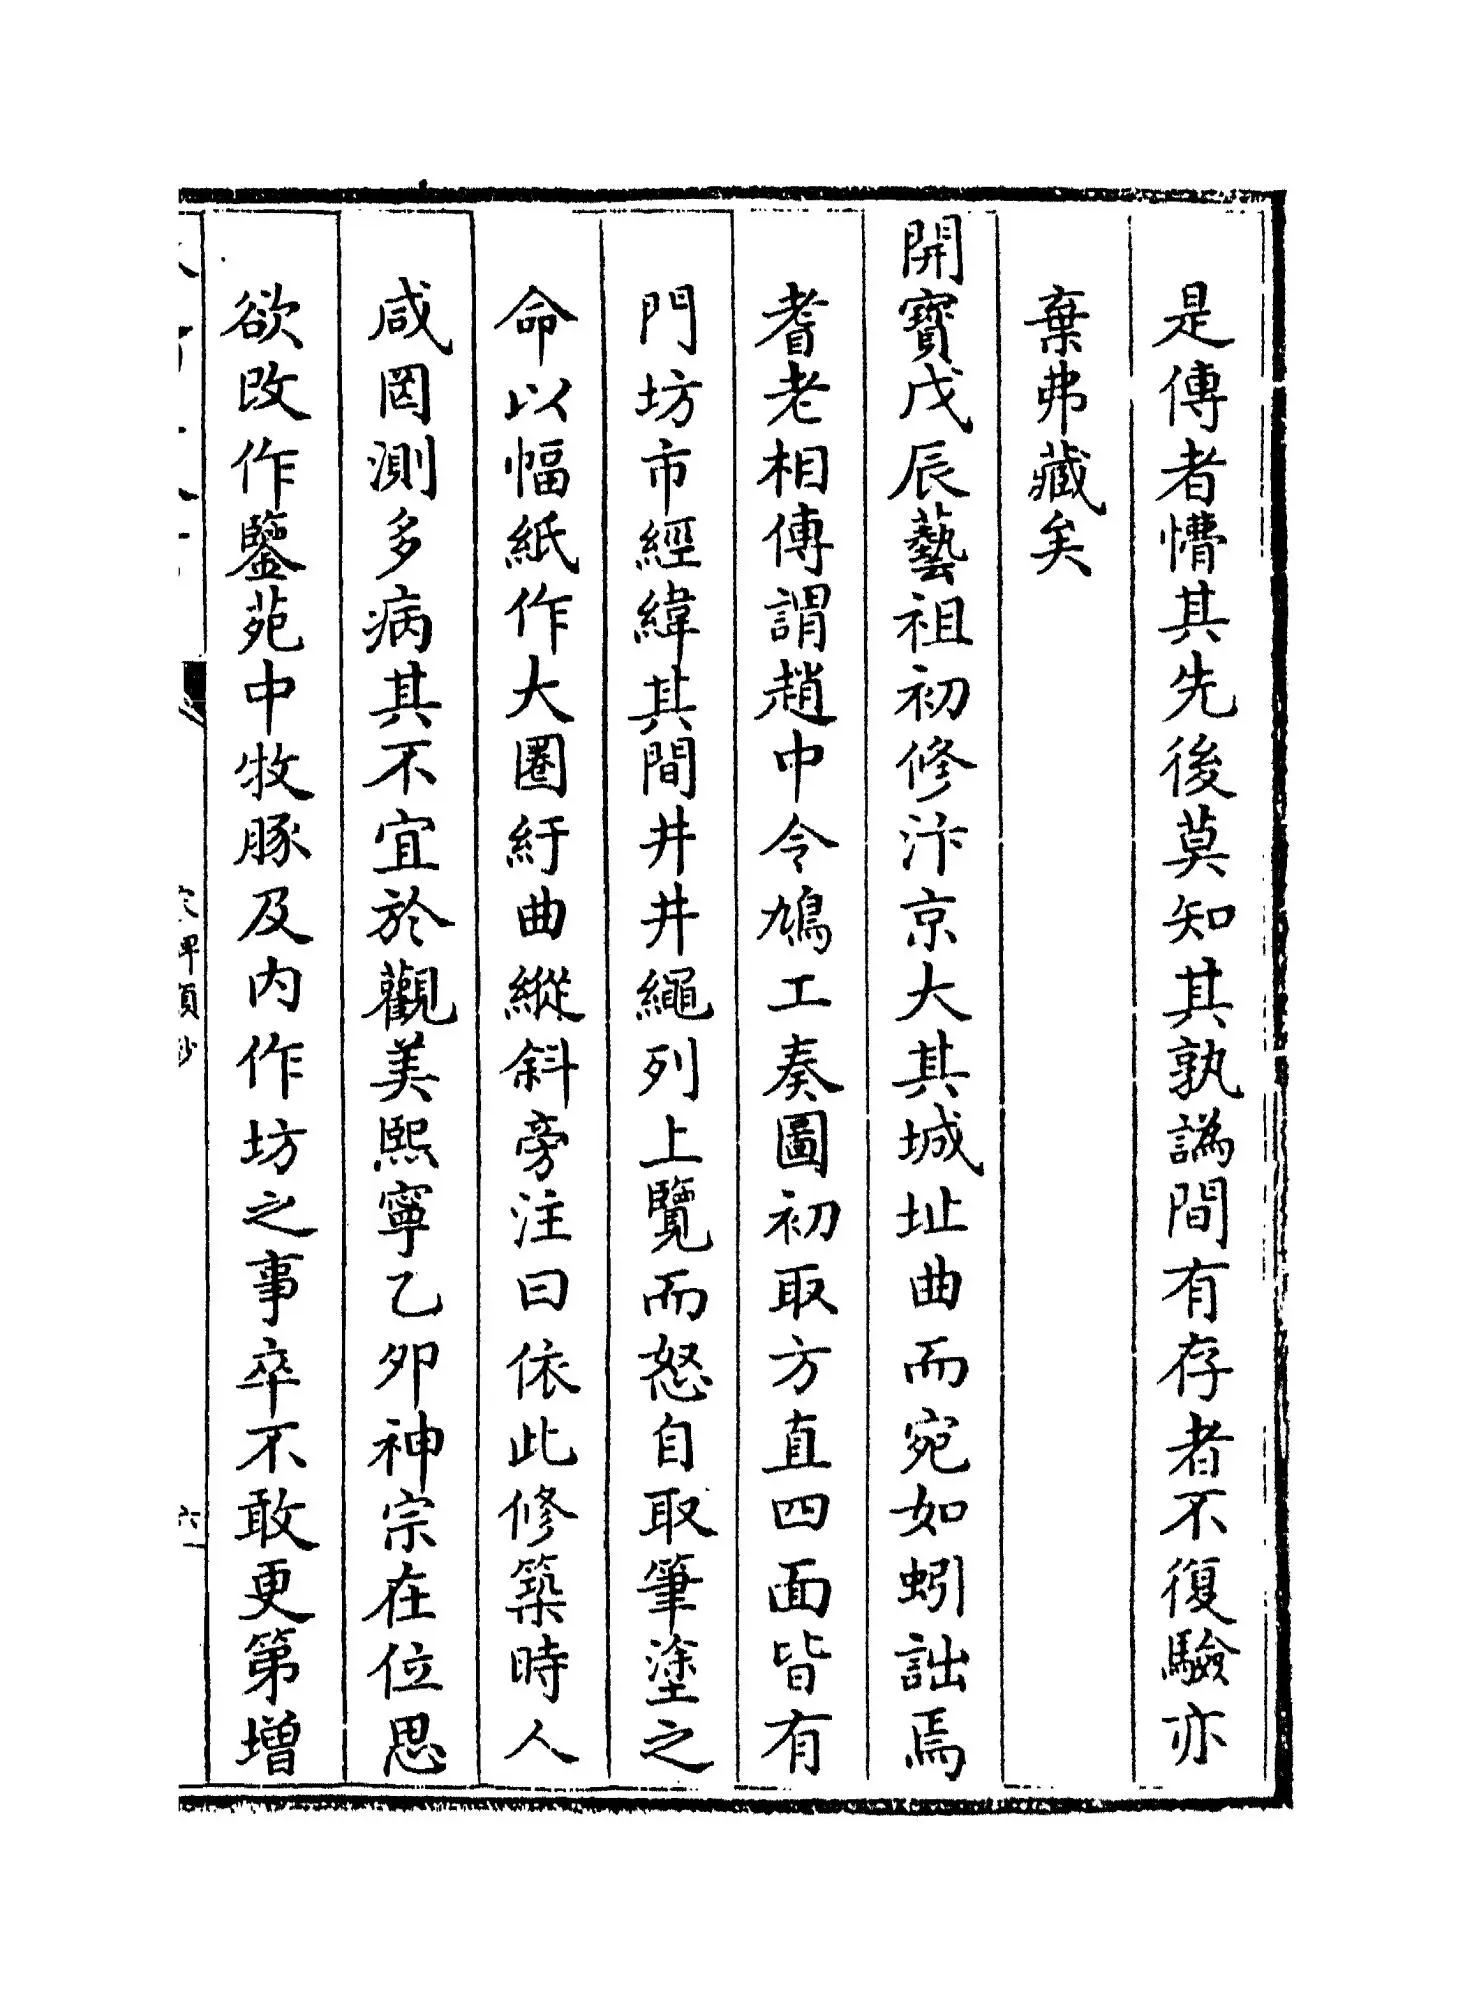 是傳者懵其先後莫知其孰譌間有存者不復驗亦
棄弗藏矣
開寳戊辰藝祖初修汴京大其城址曲而宛如蚓詘焉
耆老相傳謂趙中令鳩工奏圖初取方直四面皆有
門坊市經緯其間井井繩列上覽而怒自取筆塗之
命以幅紙作大圈紆曲縱斜旁注曰依此修築時人
咸罔測多病其不宜於觀美熙寧乙夘神宗在位思
欲改作鑒苑中牧豚及内作坊之事卒不敢更第增